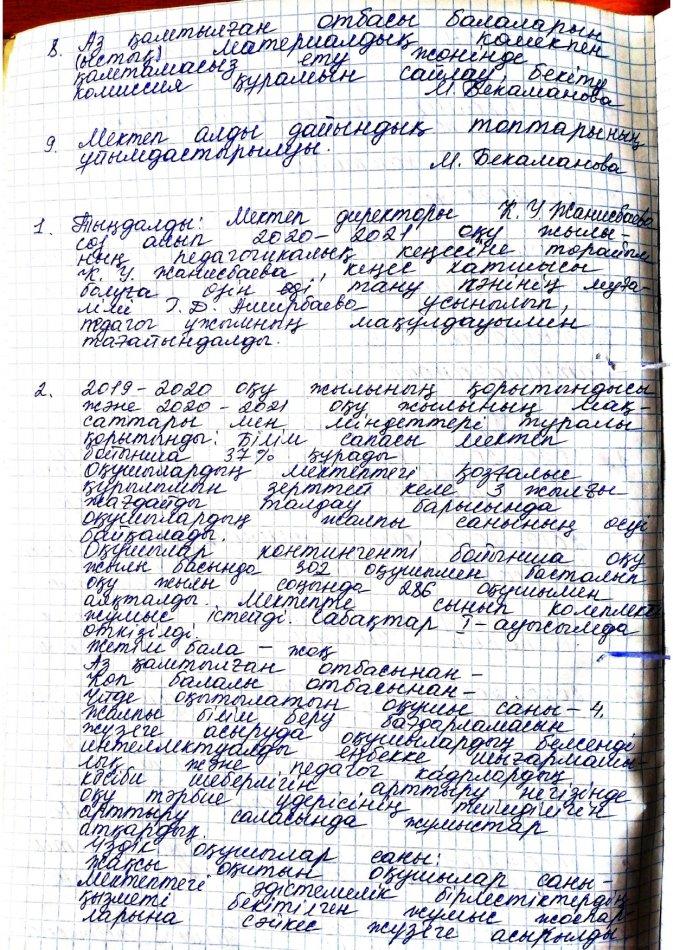 8. Аз қамтылған отбасы балаларын
(ыстық) материалдық көмекпен
қамтамасыз ету жөнінде
комиссия құрамын сайлау, бекіту
М. Бекаманова
9. Мектеп алды дайындық топтарының
ұйымдастырылуы.
М. Бекаманова
1. Тыңдалды: Мектеп директоры К. У Жанисбаева
сөз алып 2020-2021 оқу жылы-
ның педагогикалық кеңесіне төрайым
К. У. Жанисбаева, кеңес хатшысы
болуға өзін өзі тану пәнінің мұға-
лімі Г. Д. Аширбаева ұсынылып,
педагог ұжымның мақұлдауымен
тағайындалды.
2. 2019-2020 оқу жылының қорытындысы
және 2020-2021 оқу жылының мақ-
саттары мен міндеттері туралы
қорытынды: Білім сапасы мектеп
бойынша 37% құрады
Оқушылардың мектептегі қозғалыс
құрылымын зерттей келе 3 жылғы
жағдайды талдау барысында
оқушылардың жалпы санының өсуі
байқалады.
Оқушылар контингенті бойынша оқу
жылы басында 302 оқушымен басталып
оқу жылы соңында 286 оқушымен
аяқталды. Мектепте сынып комплекті
жұмыс істейді. Сабақтар I-ауысымда
өткізілді.
Жетім бала - жоқ
Аз қамтылған отбасынан-
Көп балалы отбасынан-
Үйде оқытылатын оқушы саны-4.
Жалпы білім беру бағдарламасын
жүзеге асыруда оқушылардың белсенді
интеллектуалды еңбекке шығармашы-
лық және педагог кадрлардың
кәсіби шеберлігін арттыру негізінде
оқу тәрбие үдерісінің тиімділігін
арттыру саласында жұмыстар
атқардық.
Үздік оқушылар саны:
Жақсы оқитын оқушылар саны-
Мектептегі әдістемелік бірлестіктердің
қызметі бекітілген жұмыс жоспар-
ларына сәйкес жүзеге асырылды